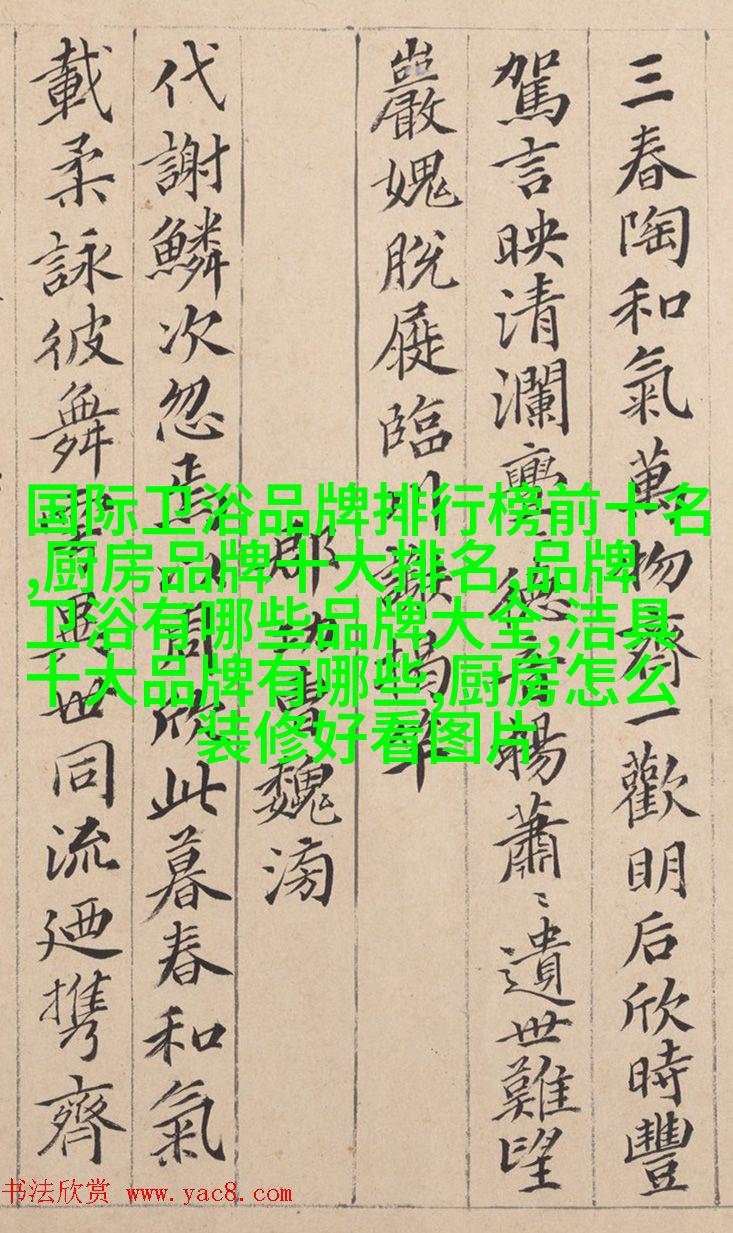 三春陶和氣萬物齊一歡明后欣時豐
駕言映清瀾亹〻德音暢蕭〻遺世難望
巖愧脫屣臨川謝揭竿
郡功曹魏滂
代謝鱗次忽焉以周欣此暮春和氣
載柔詠彼舞雩異世同流迺携齊
国际卫浴品牌排行榜前十名
,厨房品牌十大排名,品牌
卫浴有哪些品牌大全,洁具
十大品牌有哪些,厨房怎么
装修好看图片
书法欣赏 www.yac8.com